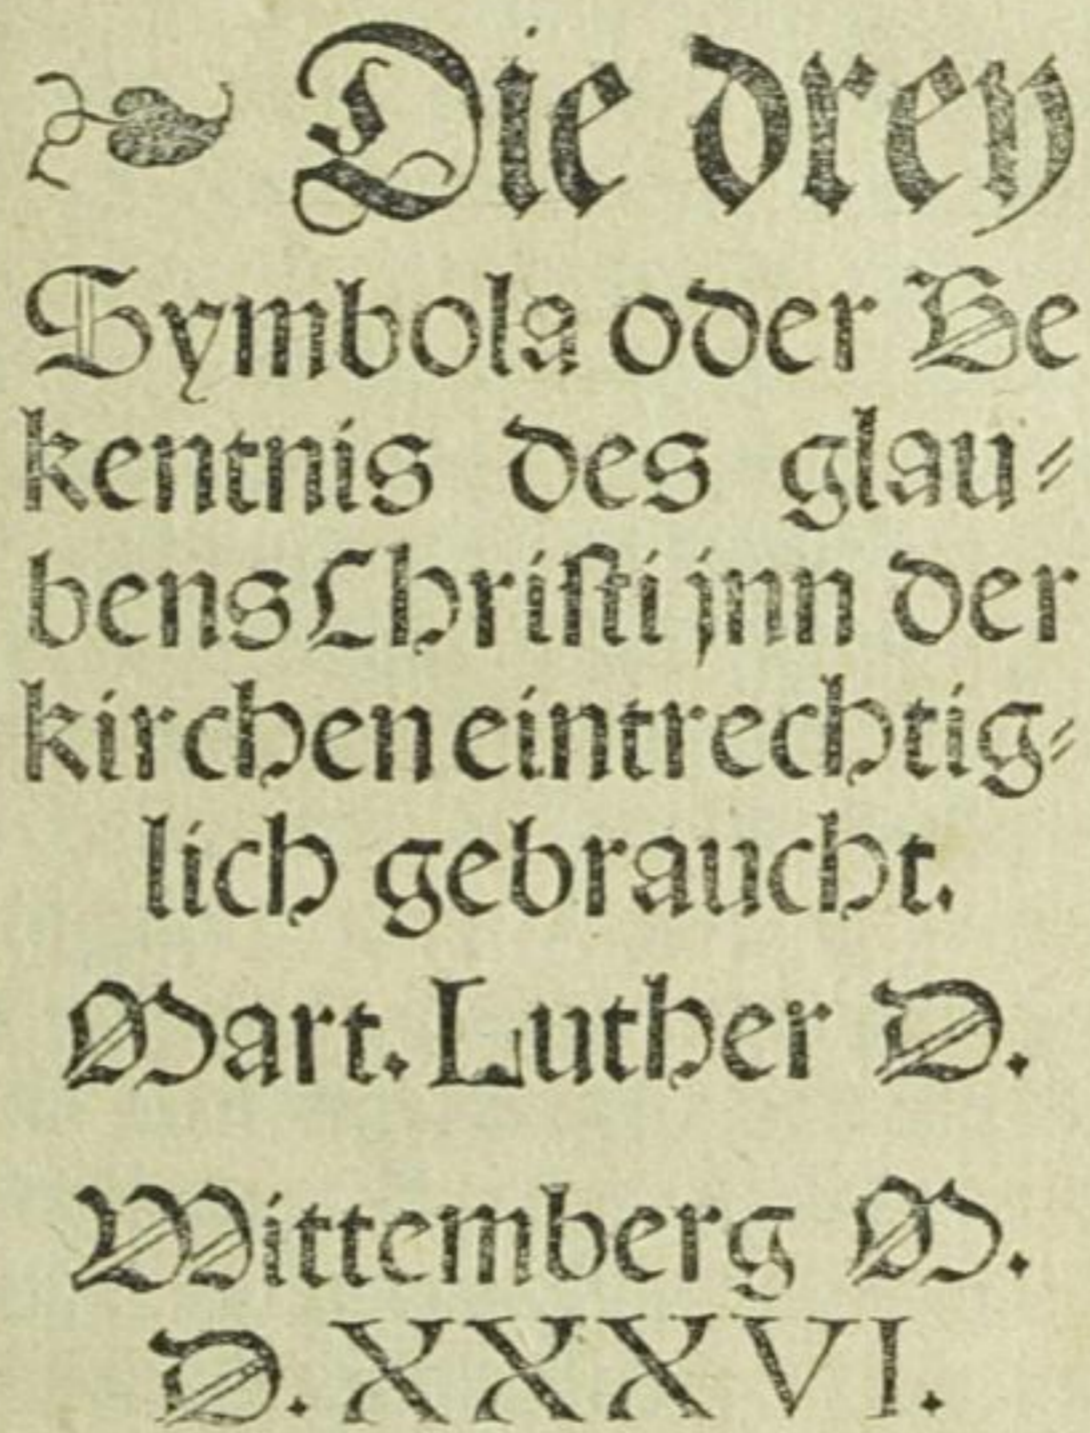 ❧ Die drey
Symbola oder Be
kentnis des glau⸗
bens Chriſti jnn der
kirchen eintrechtig⸗
lich gebraucht.
Mart. Luther D.
Wittemberg M.
D. XXXVI.